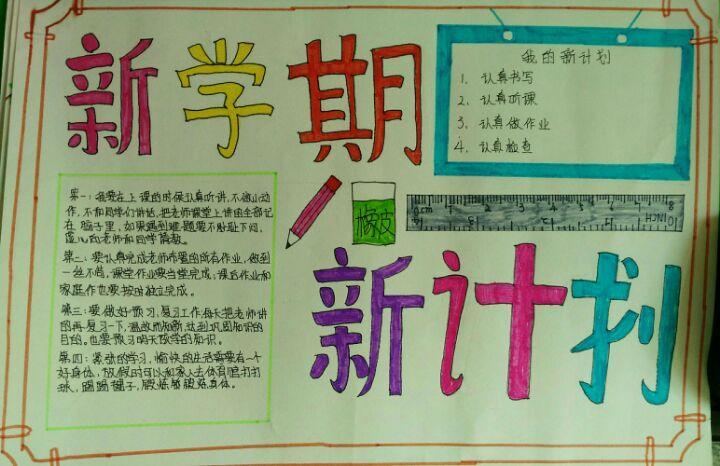 新学期
我的新计划
1、认真书写
2、认真听课
3、认真做作业
4、认真检查
橡皮
0cm 1 2 3 4 5 6 7 8
INCH
新计划
第一：我要在上课的时候认真听讲，不做小动
作，不和同学们讲话，把老师课堂上讲的全部记
在脑子里，如果遇到难题要不耻下问，
虚心向老师和同学请教。
第二：要认真完成老师布置的所有作业，做到
一丝不苟，课堂作业要当堂完成；课后作业和
家庭作也要按时独立完成。
第三：要做好预习，复习工作每天把老师讲
的再复习一下，温故而知新，达到巩固知识的
目的。也要预习明天教学的知识。
第四：紧张的学习，愉快的生活需要有一个
好身体，放假时可以和家人去体育馆打打
球，踢踢毽子，锻炼锻炼身体。